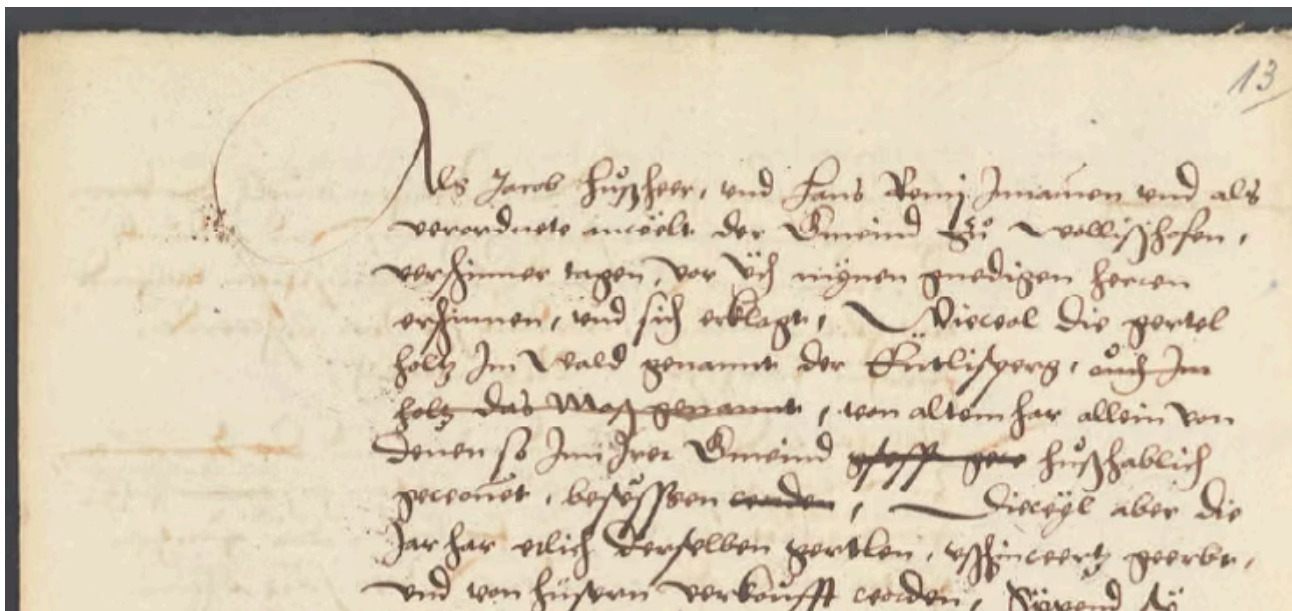 13
Als Jacob Hußheer, und Hans Remj Innamen und als
verordnete anwëlt der Gmeind zů Wollißhofen,
verschinner tagen, vor üch mÿnen gnedigen herren
erschinnen, und sich erklagt, Diewol die gertel
holtz Im Wald genannt der Ëntlisperg, ouch Im
holtz das Moß genannt, von altem har allein von
denen so Inn Irer Gmeind hußhablich
gewonet, besëssen worden, Diewÿl aber die
Jar har etlich derselben gertlen, ußhinwertz geerbt,
und von hüsern verkoufft worden, sÿ